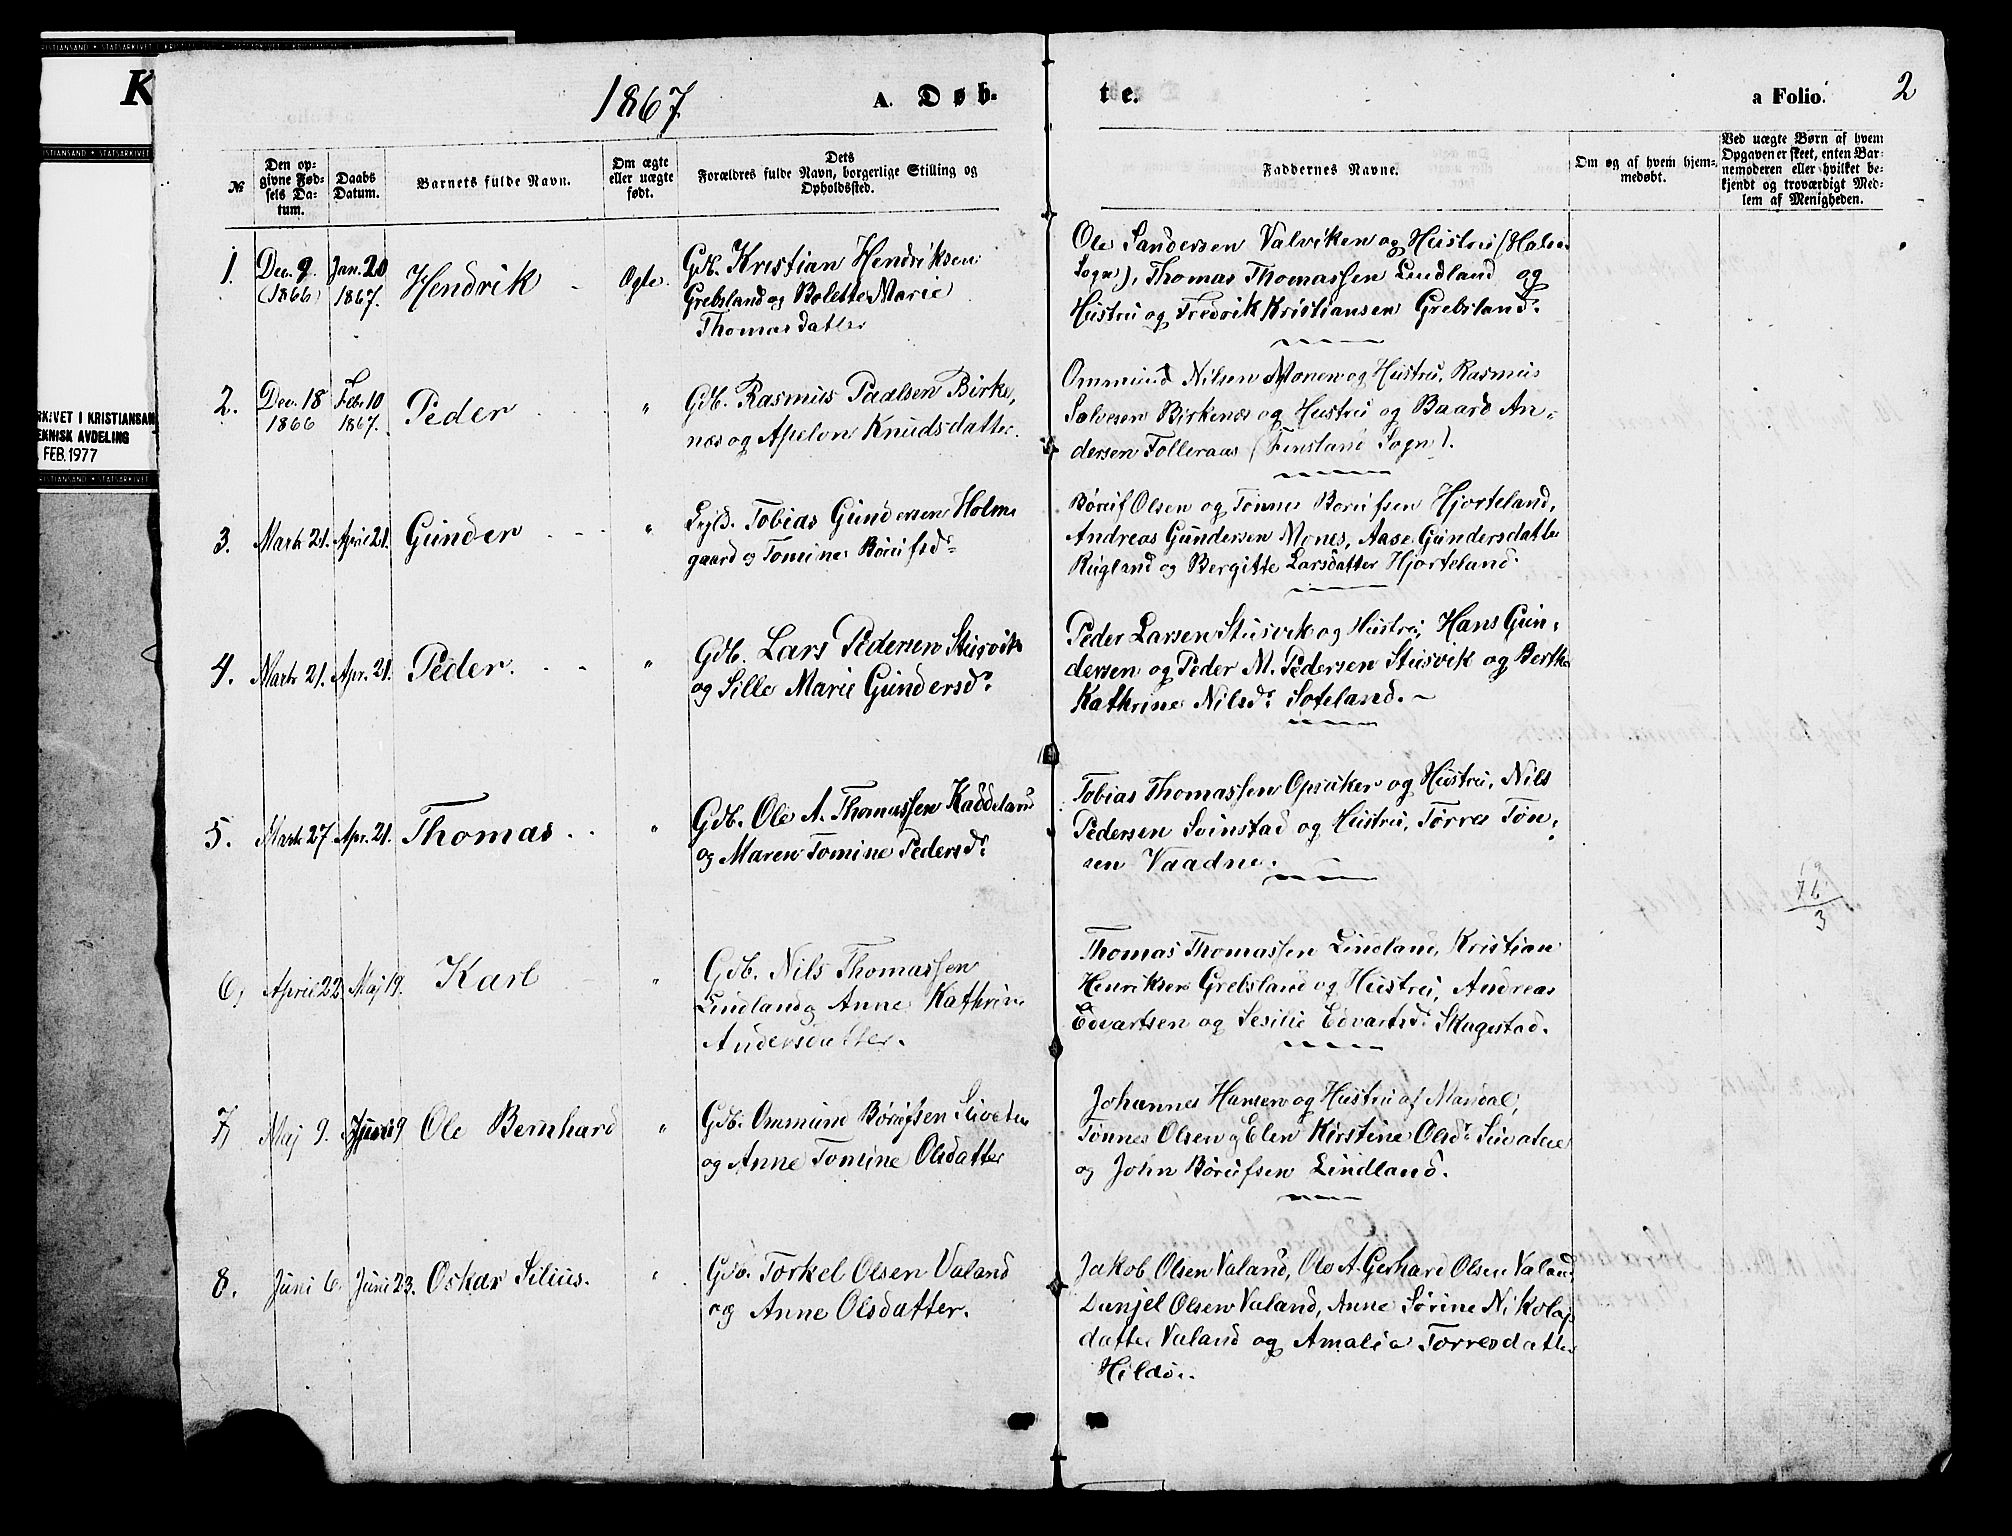 1867.
A. Døb-
te.
a Folio.
2
№
Den opgivne Fødsels Datum.
Daabs Datum.
Barnets fulde Navn.
Om ægte eller uægte født.
Dets Forældres fulde Navn, borgerlige Stilling og Opholdssted.
Faddernes Navne.
Om og af hvem hjemmedøbt.
Ved uægte Børn af hvem Opgaven er skeet, enten Barnemoderen eller hvilket bekjendt og troværdigt Medlem af Menigheden.
1. Dec. 9. (1866) Jan. 20 1867. Hendrik Ægte.
Gdb. Kristian Hendriksen
Grebsland og Bolette Marie
Thomasdatter
Ole Sandersen Valviken og Hustru (Halse
Sogn), Thomas Thomassen Lindland og
Hustru og Fredrik Kristiansen Grebsland.
2. Dec. 18 1866 Febr. 10 1867. Peder "
Gdb. Rasmus Paalsen Birke,
næs og Apelon Knudsdatter.
Ommund Nilsen Monen og Hustru, Rasmus
Salvesen Birkenæs og Hustru og Baard An-
dersen Tolleraas (Finsland Sogn).
3. Marts 21. April 21. Gunder "
Tobias Gundersen Holm
gaard og Tomine Børufsd.
Børuf Olsen og Tønnes Børufsen Hjorteland,
Andreas Gundersen Mones, Aase Gundersdatter
Rugland og Bergitte Larsdatter Hjorteland.
4. Marts 21. Apr. 21. Peder "
Gdb. Lars Pedersen Stusvik
og Sille Marie Gundersd.
Peder Larsen Stusvik og Hustru, Hans Gun-
dersen og Peder M. Pedersen Stusvik og Berthe
Kathrine Nilsd. Soteland.
5. Marts 27 Apr. 21. Thomas "
Gdb. Ole A. Thomassen Kaddeland
og Maren Tomine Pedersd.
Tobias Thomassen Opsaker og Hustru, Nils
Pedersen Svinstad og Hustru, Tørres Tøn-
sen Vaadne.
6, April 22. Maj 19. Karl "
Gdb. Nils Thomassen
Lindland og Anne Kathrine
Andersdatter.
Thomas Thomassen Lindland, Kristian
Henriksen Grebsland og Hustru, Andreas
Edvartsen og Sesilie Edvartsd. Skagestad.
7, Maj 9. Juni 9 Ole Bernhard "
Gdb. Ommund Børufsen
og Anne Tomine Olsdatter
Johannes Hansen og Hustru af Mandal,
Tønnes Olsen og Elen Kirstine Olsd.
og John Børufsen Lindland.
8. Juni 6. Juni 23. Oskar Silius. "
Gdb. Torkel Olsen Valand
og Anne Olsdatter.
Jakob Olsen Valand, Ole A. Gerhard Olsen Valand
Danjel Olsen Valand, Anne Sørine Nikolaj
datter Valand og Amalia Torresdatter
Hildø.
76
3
KRISTIANSAND • STATSARKIVET I KRISTIANSAND
K
ARKIVET I KRISTIANSAN
EKNISK AVDELING
FEB. 1977